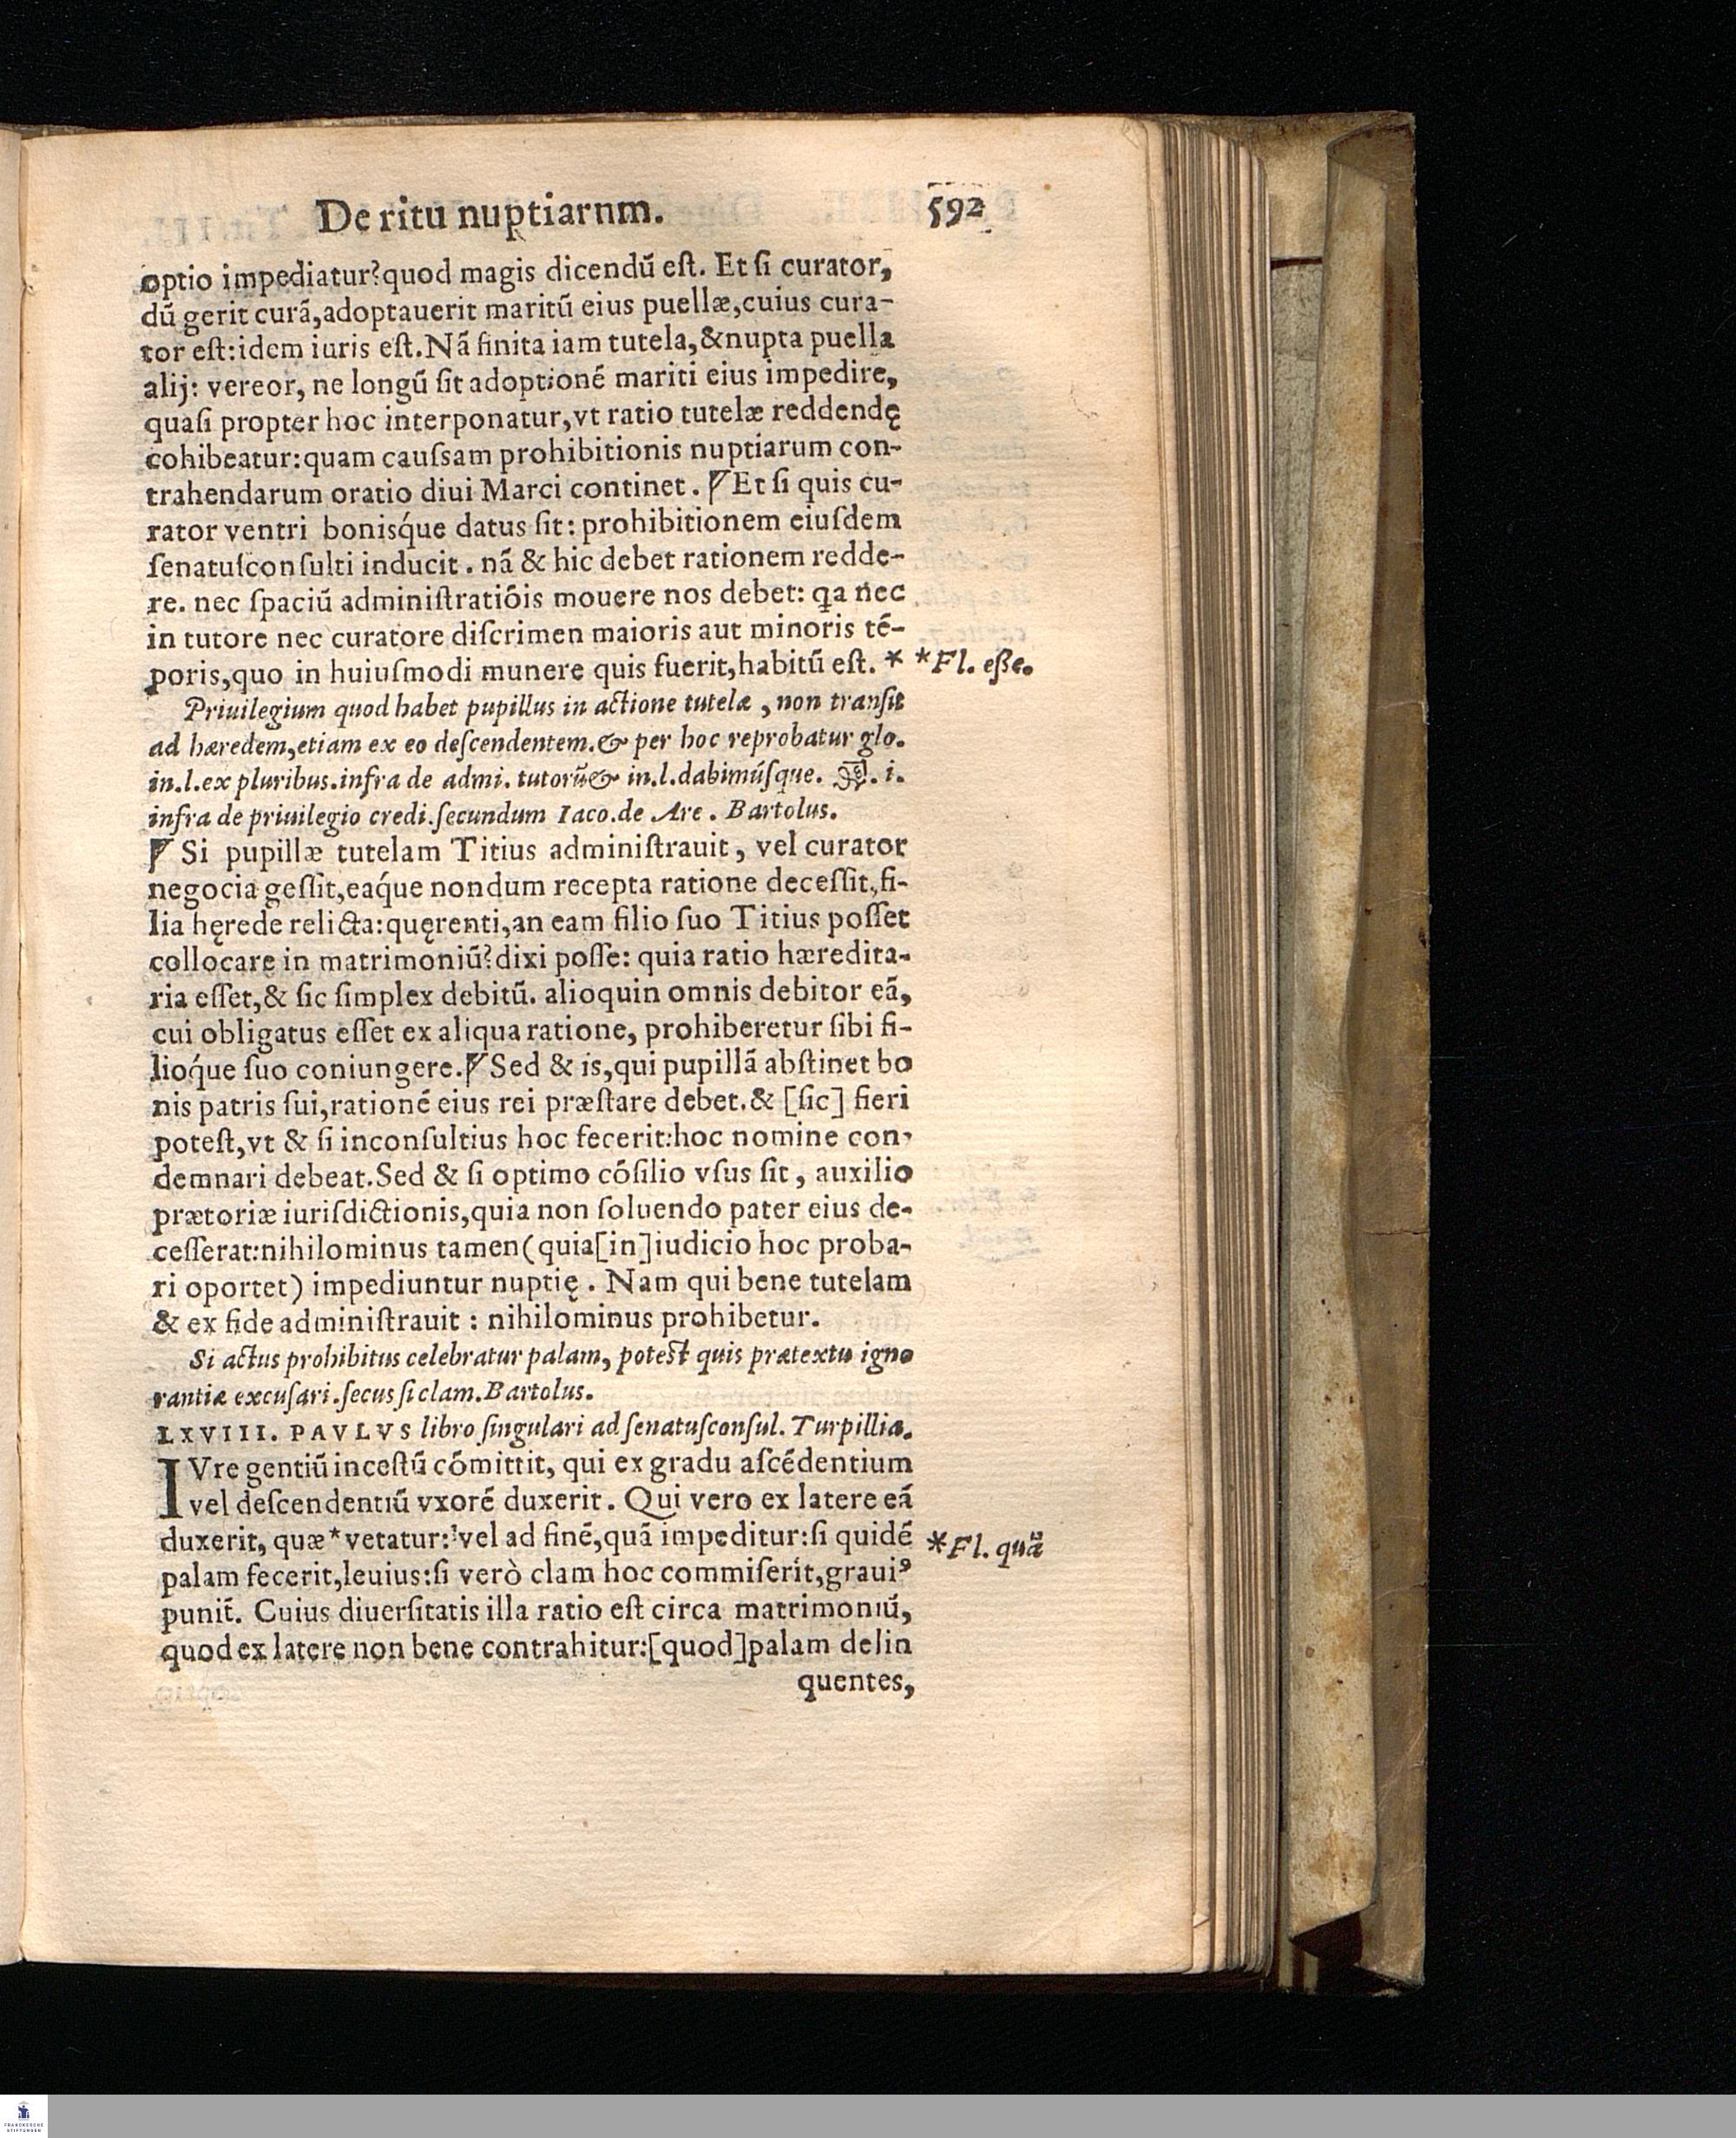 De ritu nuptiarnm. 592
optio impediatur?quod magis dicendũ eſt. Et ſi curator,
dũ gerit curã,adoptauerit maritũ eius puellæ,cuius cura-
tor eſt:idem iuris eſt.Nã finita iam tutela,&nupta puella
alij: vereor, ne longũ ſit adoptionẽ mariti eius impedire,
quaſi propter hoc interponatur,vt ratio tutelæ reddendę
cohibeatur:quam cauſsam prohibitionis nuptiarum con-
trahendarum oratio diui Marci continet. ¶Et ſi quis cu-
rator ventri bonisq́ue datus ſit: prohibitionem eiuſdem
ſenatuſconſulti inducit. nã & hic debet rationem redde-
re. nec ſpaciũ adminiſtratiõis mouere nos debet: qa nec
in tutore nec curatore diſcrimen maioris aut minoris tẽ-
poris,quo in huiuſmodi munere quis fuerit,habitũ eſt. * *Fl. eße.
Priuilegium quod habet pupillus in actione tutelæ, non tranſit
ad hæredem,etiam ex eo deſcendentem.& per hoc reprobatur glo.
in.l.ex pluribus.infra de admi. tutorũ& in.l.dabimúſque. . i.
infra de priuilegio credi.ſecundum Iaco.de Are. Bartolus.
¶ Si pupillæ tutelam Titius adminiſtrauit, vel curator
negocia geſſit,eaq́ue nondum recepta ratione deceſſit,fi-
lia hęrede relicta:quęrenti,an eam filio ſuo Titius poſſet
collocare in matrimoniũ?dixi poſſe: quia ratio hæredita-
ria eſſet,& ſic ſimplex debitũ. alioquin omnis debitor eã,
cui obligatus eſſet ex aliqua ratione, prohiberetur ſibi fi-
lioq́ue ſuo coniungere.¶Sed & is,qui pupillã abſtinet bo
nis patris ſui,rationẽ eius rei præſtare debet.& [ſic] fieri
poteſt,vt & ſi inconſultius hoc fecerit:hoc nomine con-
demnari debeat.Sed & ſi optimo cõſilio vſus ſit, auxilio
prætoriæ iuriſdictionis,quia non ſoluendo pater eius de-
ceſſerat:nihilominus tamen(quia[in]iudicio hoc proba-
ri oportet) impediuntur nuptię. Nam qui bene tutelam
& ex fide adminiſtrauit: nihilominus prohibetur.
Si actus prohibitus celebratur palam, poteſt quis prætextu igno
rantiæ excuſari.ſecus ſi clam.Bartolus.
LXVIII. PAVLVS libro ſingulari ad ſenatuſconſul. Turpillia.
IVre gentiũ inceſtũ cõmittit, qui ex gradu aſcẽdentium
vel deſcendentiũ vxorẽ duxerit. Qui vero ex latere eã
duxerit, quæ*vetatur:vel ad finẽ,quã impeditur:ſi quidẽ *Fl. quã
palam fecerit,leuius:ſi verò clam hoc commiſerit,grauiꝰ
punit̃. Cuius diuerſitatis illa ratio eſt circa matrimoniũ,
quod ex latere non bene contrahitur:[quod]palam delin
quentes,
FRANCKESCHE
STIFTUNGEN